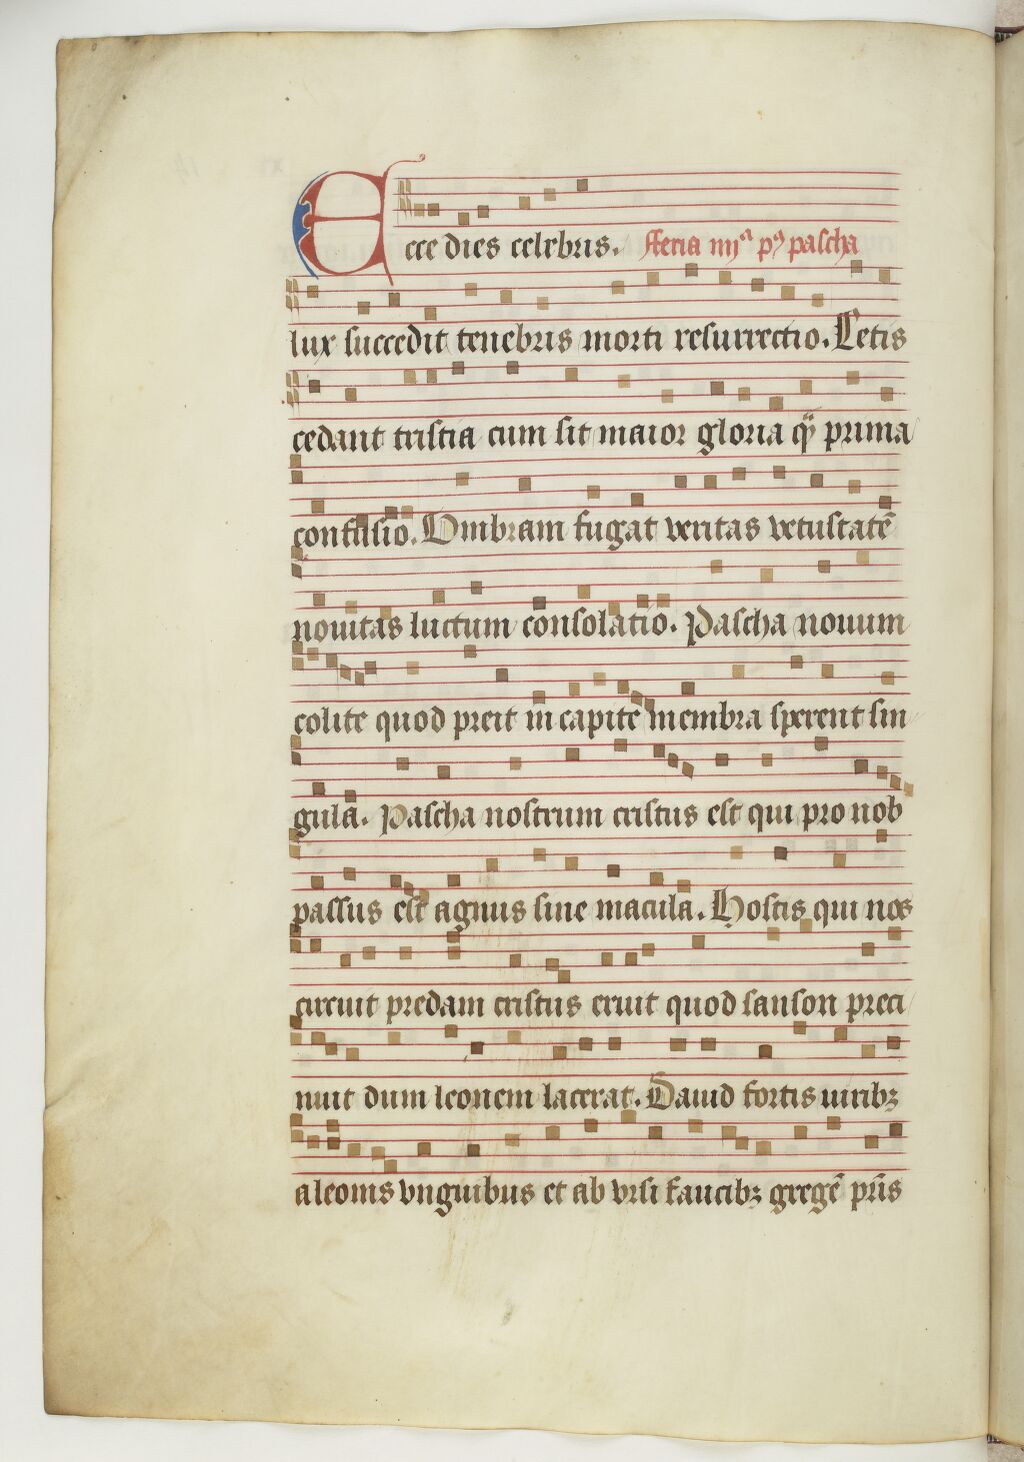 Ecce dies celebris. Feria iiijª pꝰ pascha
lux succedit tenebris morti resurrectio. Letis
cedant tristia cum sit maior gloria qͣ prima
confusio. Umbram fugat veritas vetustatē
nouitas luctum consolatio. Pascha nouum
colite quod preit in capite membra sperent sin
gula. Pascha nostrum cristus est qui pro nob
passus est agnus sine macula. Hostis qui nos
circuit predam cristus eruit quod sanson preci
nuit dum leonem lacerat. Dauid fortis uiribꝫ
a leonis vnguibus et ab vrsi faucibꝫ gregē pr̄is